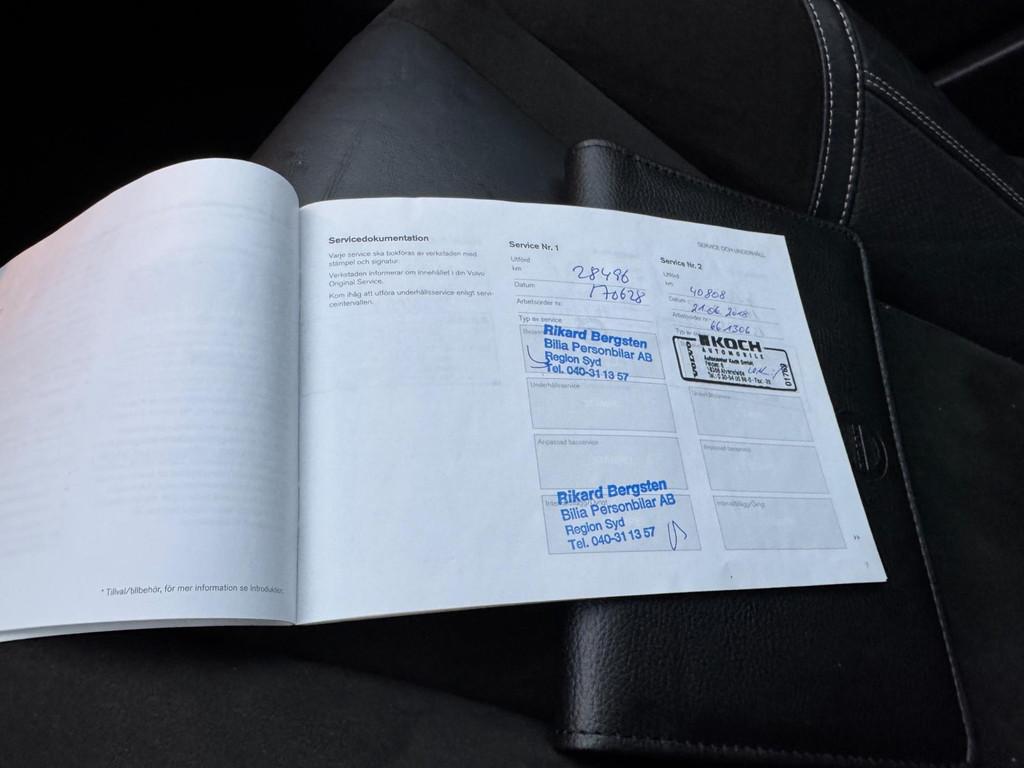 Servicedokumentation
Varje service ska bokföras av verkstaden med
stämpel och signatur.
Verkstaden informerar om innehållet i din Volvo
Original Service.
Kom ihåg att utföra underhållsservice enligt serv-
iceintervallen.
* Tillval/tillbehör, för mer information se Introduktion.
SERVICE OCH UNDERHÅLL
Service Nr. 1
Utförd
km 28496
Datum 170628
Arbetsorder nr.
Typ av service
Rikard Bergsten
Bilia Personbilar AB
Region Syd
Tel. 040-31 13 57
Underhållsservice
Anpassad basservice
Rikard Bergsten
Bilia Personbilar AB
Region Syd
Tel. 040-31 13 57
Service Nr. 2
Utförd
km 40808
Datum 21.06.2018
Arbetsorder nr. 661306
Typ av
VOLVO
KOCH
AUTOMOBILE
Autocenter Koch GmbH
01769
Underhållsservice
Anpassad basservice
Intervalltillägg/Övrigt
››